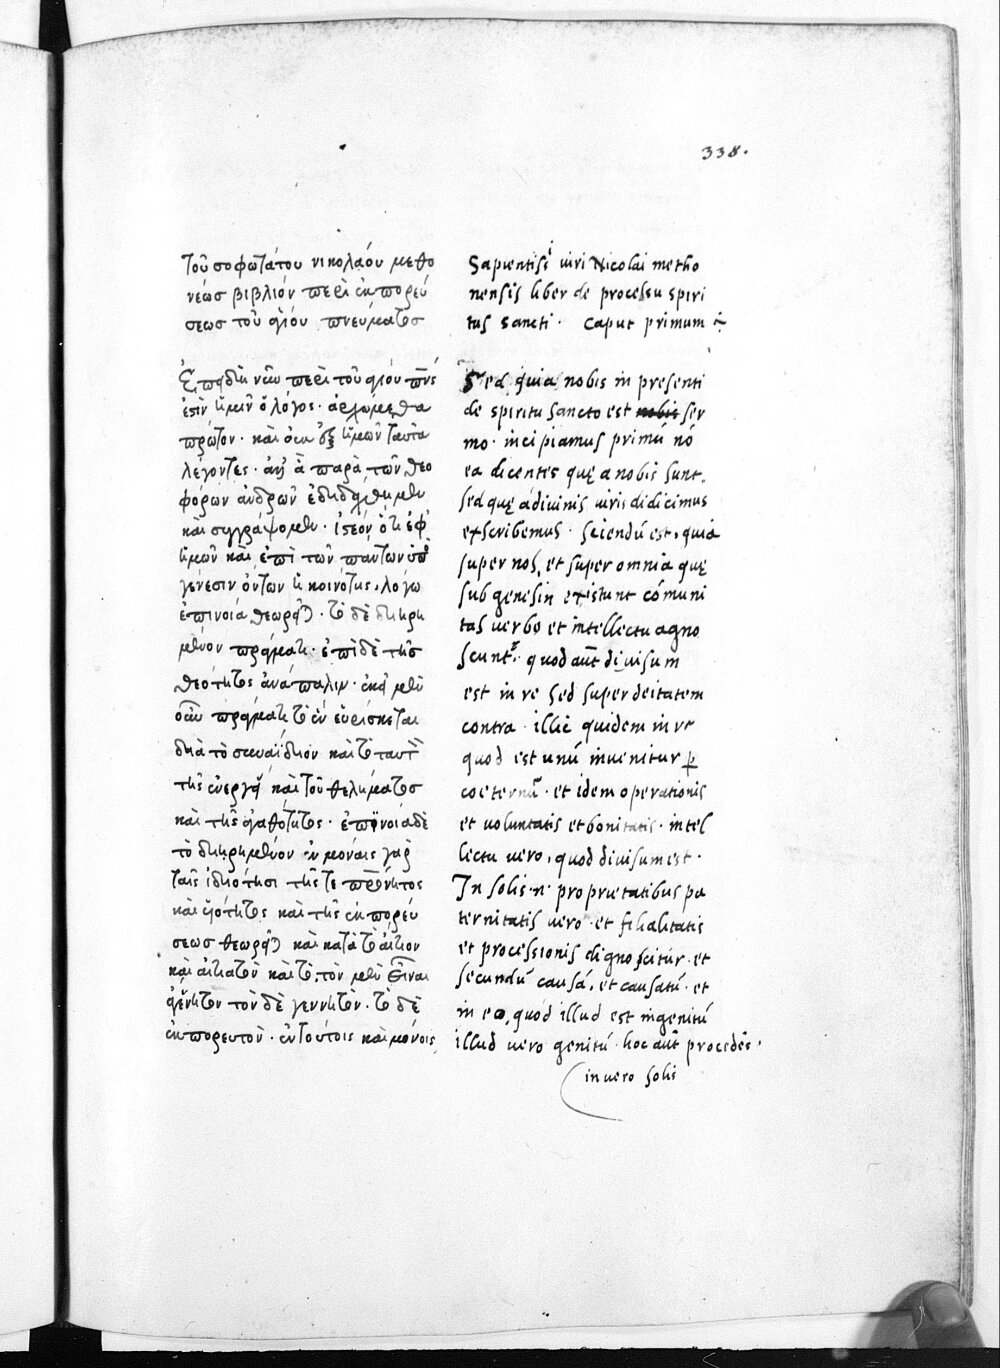 338.
τοῦ σοφωτάτου νικολάου μεθω
νέωσ βιβλίον περὶ ἐκπορεύ
σεωσ τοῦ ἁγίου πνεύματοσ
Ἐπειδὴ νῦν περὶ τοῦ ἁγίου πνσ
ἐστὶν ἡμῖν ὁ λόγος· ἀρξώμεθα
πρῶτον· καὶ οὐκ ἐξ ἡμῶν ταῦτα
λέγοντες· ἀλλ' ἃ παρὰ τῶν θεο
φόρων ἀνδρῶν ἐδιδάχθημεν
καὶ συγγράψομεν· ἰστέον ὅτι ἐφ'
ἡμῶν καὶ ἐπὶ τῶν πάντων ὑπὸ
γένεσιν ὄντων ἡ κοινότης, λόγω
ἐπινοία θεωρεῖται· τὸ δὲ διηρη
μένον πράγματι· ἐπὶ δὲ τῆσ
θεότητος ἀνάπαλιν· ἐκεῖ μὲν
οὖν πράγματι τὸ ἓν εὑρίσκεται
διὰ τὸ συναΐδιον καὶ τὸ ταυτὸν
τῆς ἐνεργείας καὶ τοῦ θελήματοσ
καὶ τῆς ἀγαθότητος· ἐπινοία δὲ
τὸ διηρημένον ἐν μόναις γὰρ
ταῖς ἰδιότησι τῆς τε πρότητος
καὶ υἱότητος καὶ τῆς ἐκπορεύ
σεωσ θεωρεῖται καὶ κατὰ τὸ αἴτιον
καὶ αἰτιατὸν καὶ τὸ, τὸν μὲν εἶναι
ἀγέννητον τὸν δὲ γεννητὸν· τὸ δὲ
ἐκπορευτὸν· ἐν τούτοις καὶ μόνοις
Sapientissi viri Nicolai metho
nensis liber de processu spiri
tus sancti· Caput primum
Sed quia nobis in presenti
de spiritu sancto est nobis ser
mo· incipiamus primū nō
ea dicentes quę a nobis sunt,
sed quę a divinis viris didicimus
exscribemus· Sciendū est, quia
super nos, et super omnia quę
sub genesin existunt cōmuni
tas verbo et intellectu agno
scunt· quod aūt divisum
est in re sed super deitatem
contra· illic quidem in re
quod est unū invenitur p
coeternū· et idem operationis
et voluntatis et bonitatis· intel
lectu vero, quod divisum est·
In solis·n· proprietatibus pa
ternitatis vero et filialitatis
et processionis dignoscitur· et
secundū causā, et causatū· et
in eo, quod illud est ingenitū
illud vero genitū· hoc aūt procedēs·
in vero solis